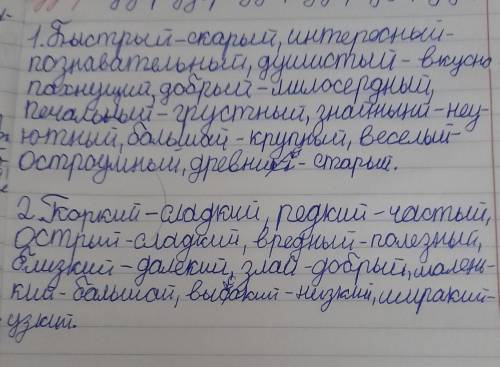 1. Быстрый-скарый, интересный-
познавательный, душистый-вкусно
пахнущий, добрый-милосердный,
печальный-грустный, знайныни-неу-
ютный, большой-крупный, веселый-
остроумный, древний-старый.
2. Горкий-сладкий, редкий-частый,
острый-сладкий, вредный-полезный,
близкий-далекий, злай-добрый, малень-
кий-большой, высокий-низкий, ширакий-
узкий.